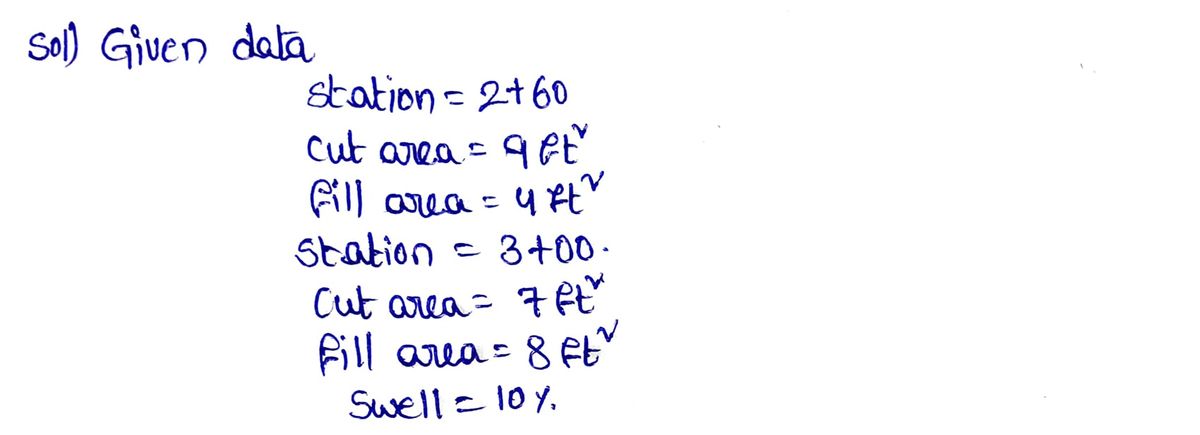 Sol) Given data
Station = 2+60
Cut area = 9 ft²
fill area = 4 ft²
Station = 3+00.
Cut area = 7 ft²
fill area = 8 ft²
Swell = 10 %.